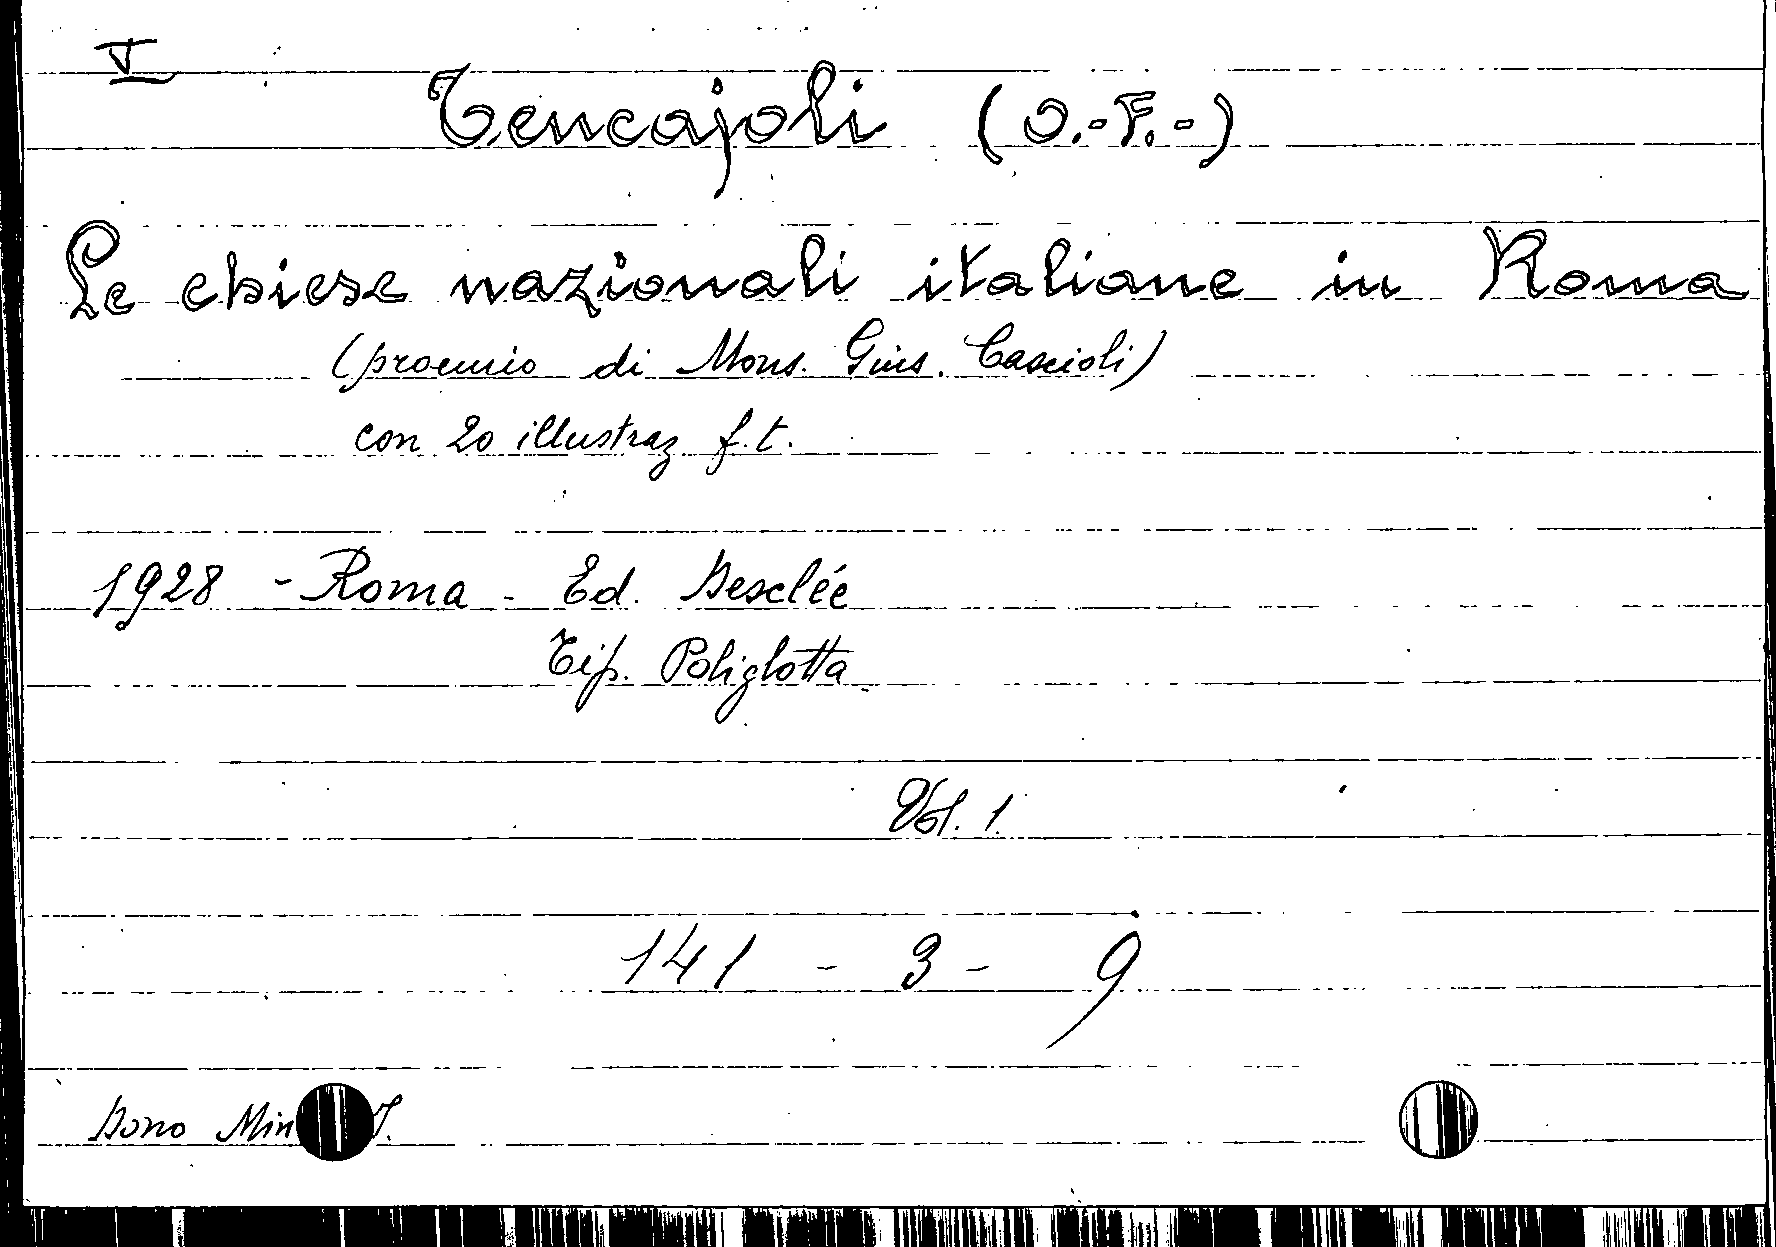 V
Tencajoli (O.-F.-)
Le chiese nazionali italiane in Roma
(proemio di Mons. Gius. Cascioli)
con 20 illustraz. f.t.
1928 - Roma - Ed. Desclée
Tip. Poliglotta
Vol. 1.
141 - 3 - 9
Dono Min